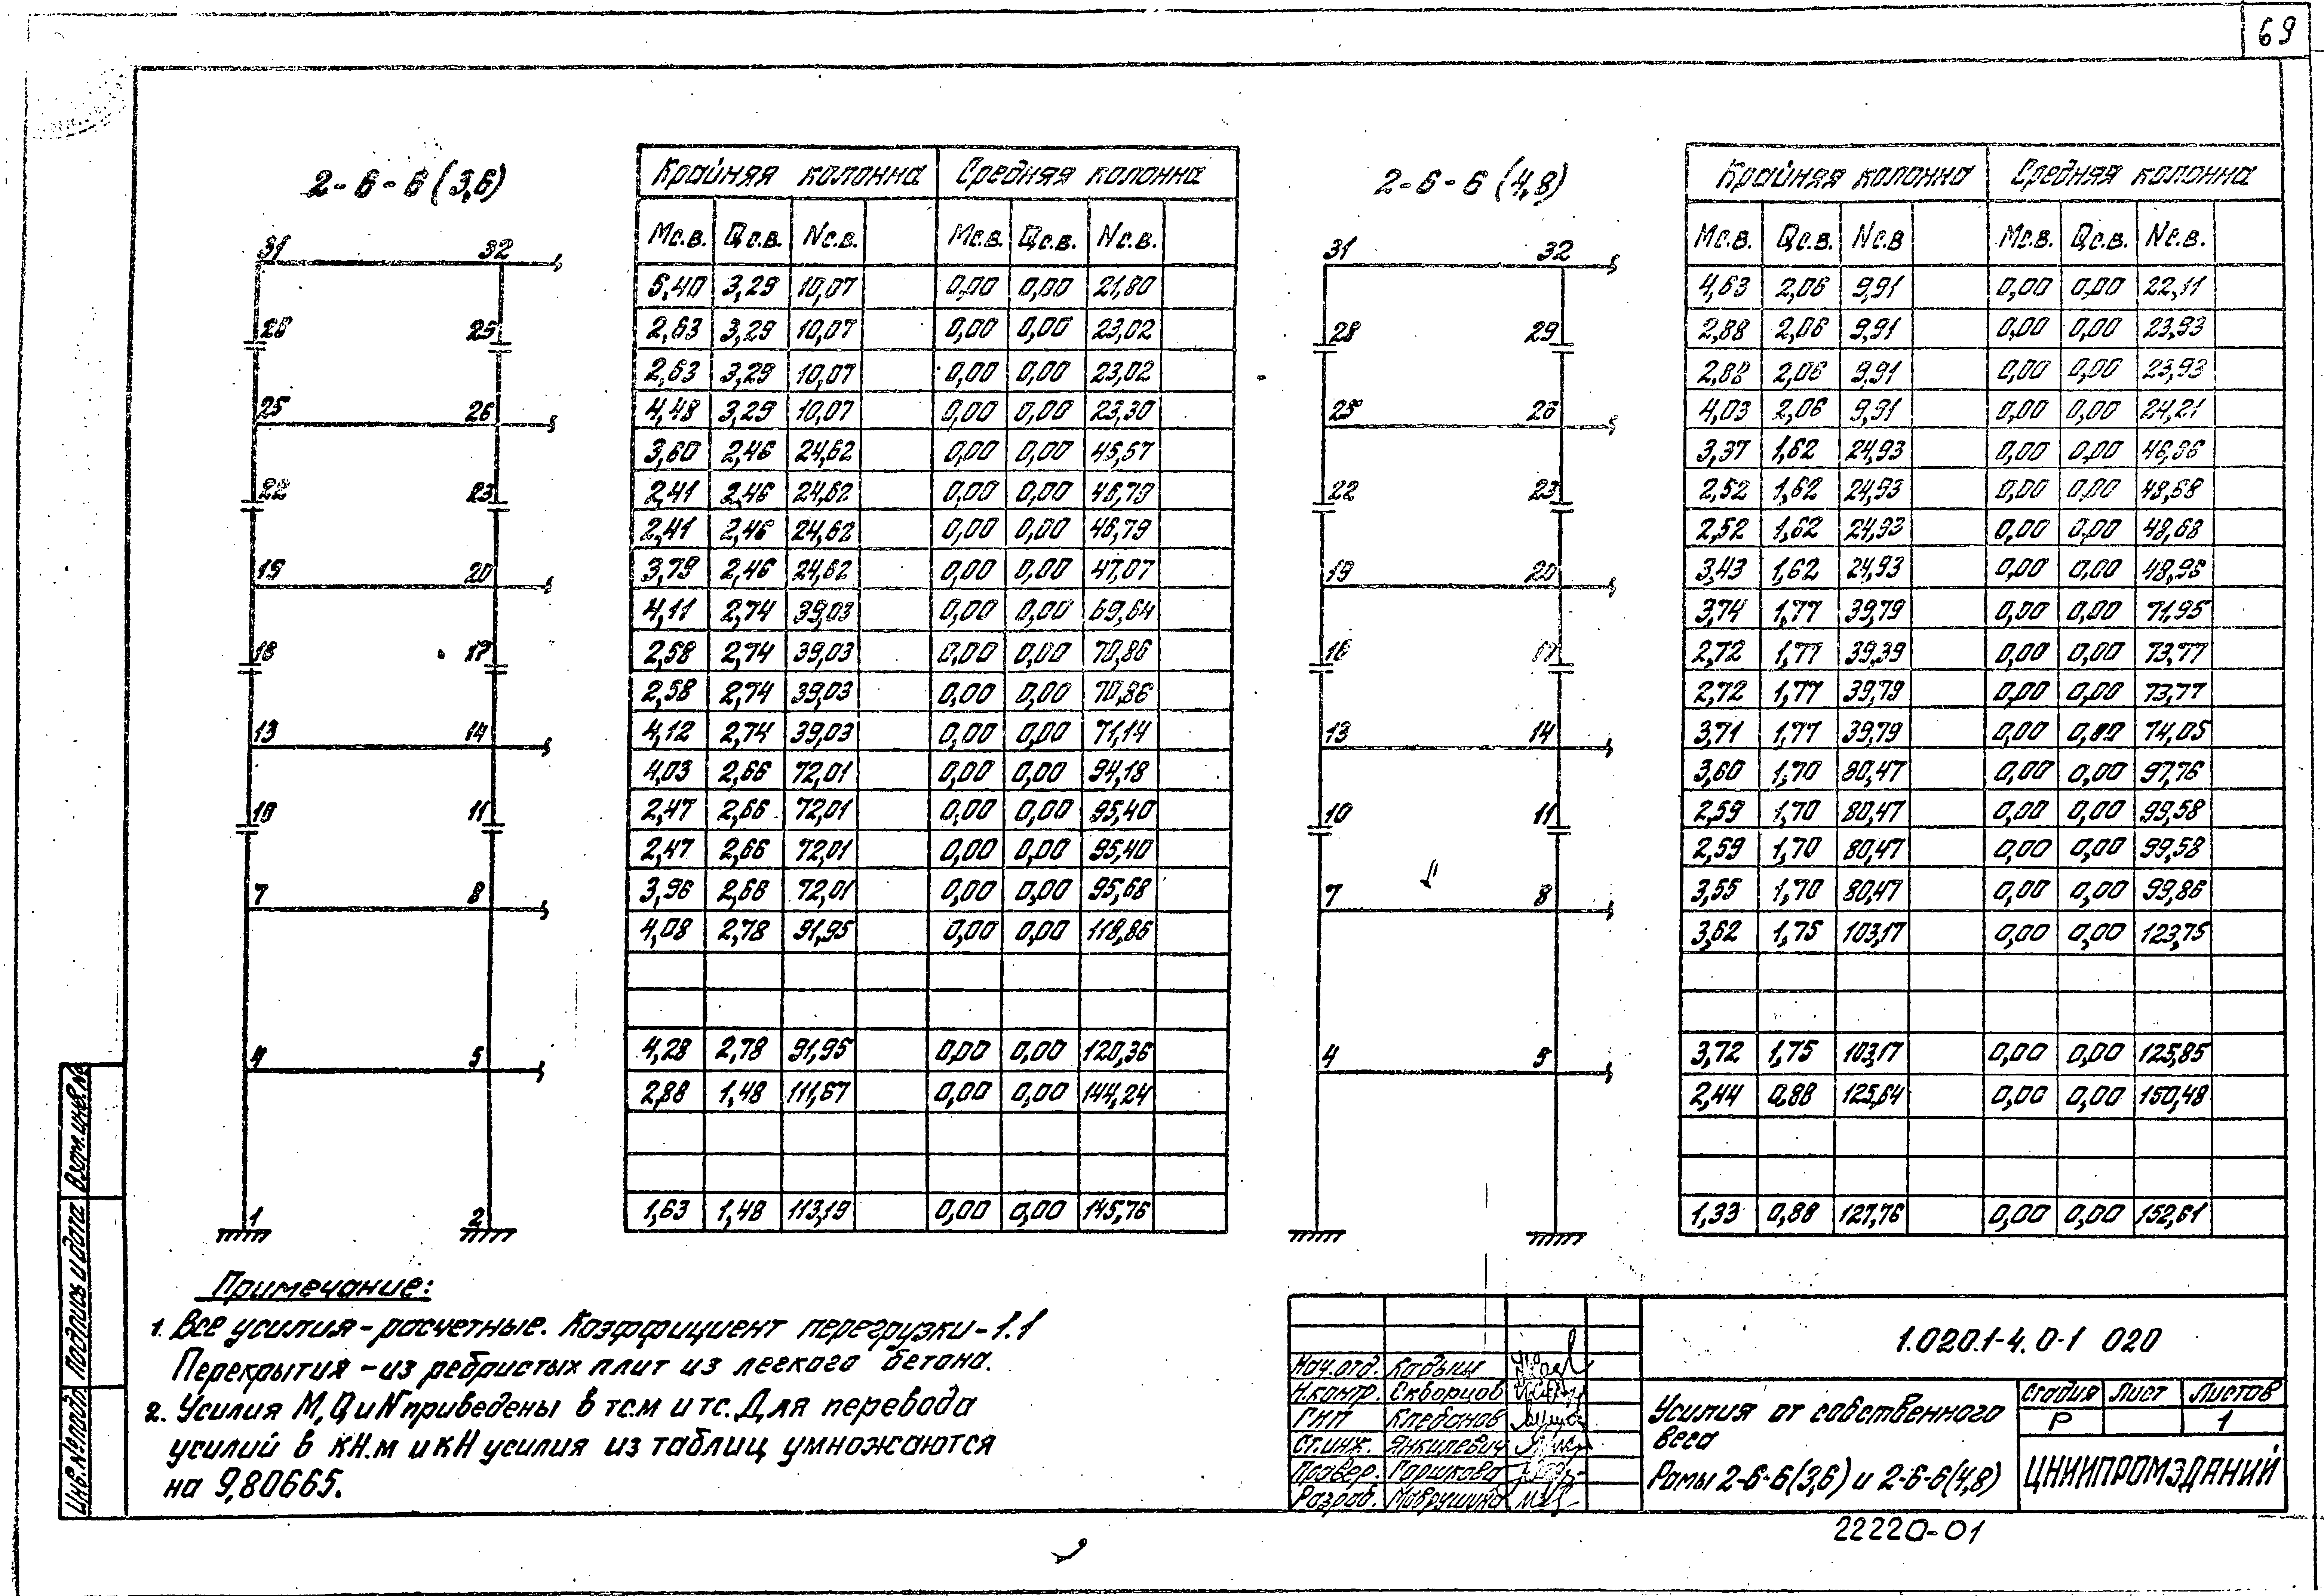 69
2-6-6 (3,6)
31 32
28 29
25 26
22 23
19 20
16 17
13 14
10 11
7 8
4 5
1 2
Крайняя колонна Средняя колонна
Мс.в. Qс.в. Nс.в. Мс.в. Qс.в. Nс.в.
5,40 3,29 10,07 0,00 0,00 21,80
2,63 3,29 10,07 0,00 0,00 23,02
2,63 3,29 10,07 0,00 0,00 23,02
4,48 3,29 10,07 0,00 0,00 23,30
3,60 2,46 24,62 0,00 0,00 45,57
2,41 2,46 24,62 0,00 0,00 46,79
2,41 2,46 24,62 0,00 0,00 46,79
3,79 2,46 24,62 0,00 0,00 47,07
4,11 2,74 39,03 0,00 0,00 69,64
2,58 2,74 39,03 0,00 0,00 70,86
2,58 2,74 39,03 0,00 0,00 70,86
4,12 2,74 39,03 0,00 0,00 71,14
4,03 2,66 72,01 0,00 0,00 94,18
2,47 2,66 72,01 0,00 0,00 95,40
2,47 2,66 72,01 0,00 0,00 95,40
3,96 2,66 72,01 0,00 0,00 95,68
4,08 2,78 91,95 0,00 0,00 118,86
4,28 2,78 91,95 0,00 0,00 120,36
2,88 1,48 111,67 0,00 0,00 144,24
1,63 1,48 113,19 0,00 0,00 145,76
2-6-6 (4,8)
31 32
28 29
25 26
22 23
19 20
16 17
13 14
10 11
7 8
4 5
Крайняя колонна Средняя колонна
Мс.в. Qс.в. Nс.в Мс.в. Qс.в. Nс.в.
4,63 2,06 9,91 0,00 0,00 22,11
2,88 2,06 9,91 0,00 0,00 23,93
2,88 2,06 9,91 0,00 0,00 23,93
4,03 2,06 9,91 0,00 0,00 24,21
3,37 1,62 24,93 0,00 0,00 46,86
2,52 1,62 24,93 0,00 0,00 48,68
2,52 1,62 24,93 0,00 0,00 48,68
3,43 1,62 24,93 0,00 0,00 48,96
3,74 1,77 39,79 0,00 0,00 71,95
2,72 1,77 39,39 0,00 0,00 73,77
2,72 1,77 39,79 0,00 0,00 73,77
3,71 1,77 39,79 0,00 0,00 74,05
3,60 1,70 80,47 0,00 0,00 97,76
2,59 1,70 80,47 0,00 0,00 99,58
2,59 1,70 80,47 0,00 0,00 99,58
3,55 1,70 80,47 0,00 0,00 99,86
3,62 1,75 103,17 0,00 0,00 123,75
3,72 1,75 103,17 0,00 0,00 125,85
2,44 0,88 125,64 0,00 0,00 150,48
1,33 0,88 127,76 0,00 0,00 152,61
Примечание:
1. Все усилия - расчетные. Коэффициент перегрузки - 1.1
Перекрытия - из ребристых плит из легкого бетона.
2. Усилия M, Q и N приведены в тс.м и тс. Для перевода
усилий в кН.м и кН усилия из таблиц умножаются
на 9,80665.
Инв.№ подл. Подпись и дата Взам.инв.№
Нач.отд. Кадыш
Н.контр. Скворцов
ГИП Клебанов
Ст.инж. Янкилевич
Провер. Горшкова
Разраб. Маврушина
1.020.1-4.0-1 020
Усилия от собственного
веса
Рамы 2-6-6(3,6) и 2-6-6(4,8)
Стадия Лист Листов
Р 1
ЦНИИПРОМЗДАНИЙ
22220-01